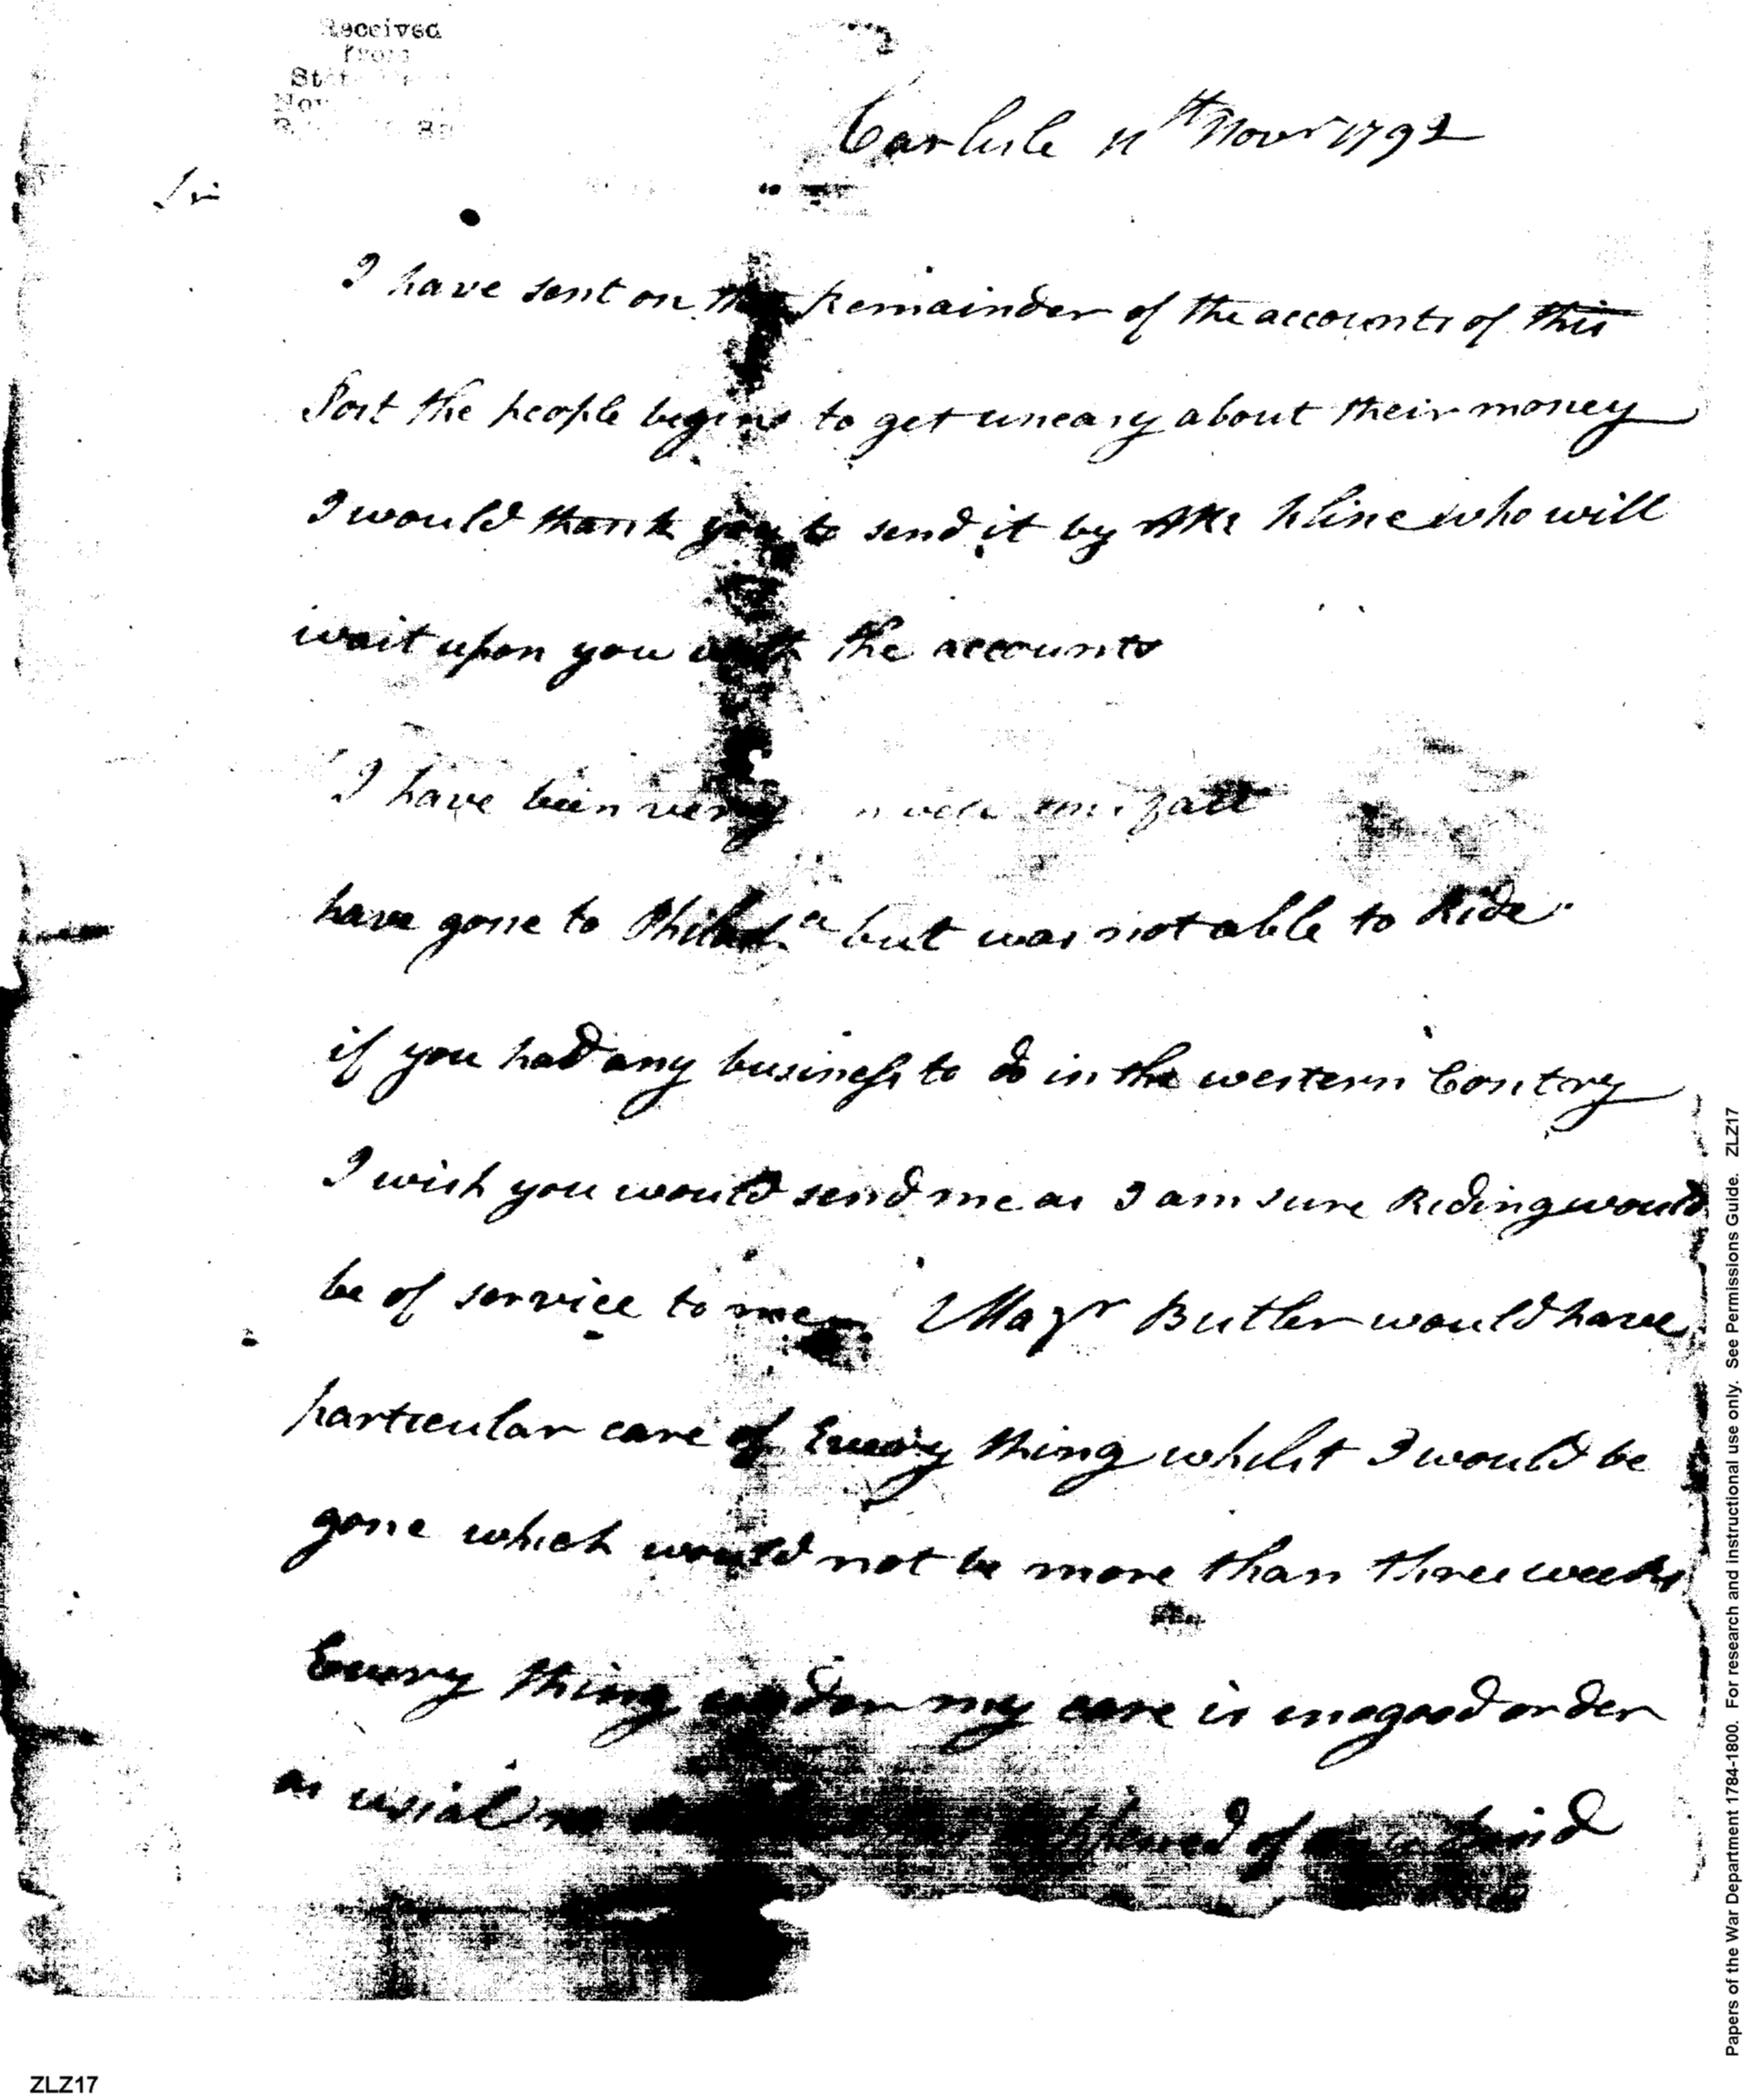 Received
from
State
Nov
Carlisle 11th Novr 1792
Sir
I have sent on the Remainder of the accounts of this
Post the people begins to get uneasy about their money
I would thank you to send it by Mr Kline who will
wait upon you with the accounts
I have been very unwell this fall
have gone to Philada but was not able to Ride
if you had any business to do in the western Contry
I wish you would send me as I am sure Riding would
be of service to me Majr Butler would have
particular care of Every thing whilst I would be
gone which would not be more than three weeks
Every thing under my care is in as good order
as usial no of
Papers of the War Department 1784-1800. For research and instructional use only. See Permissions Guide. ZLZ17
ZLZ17